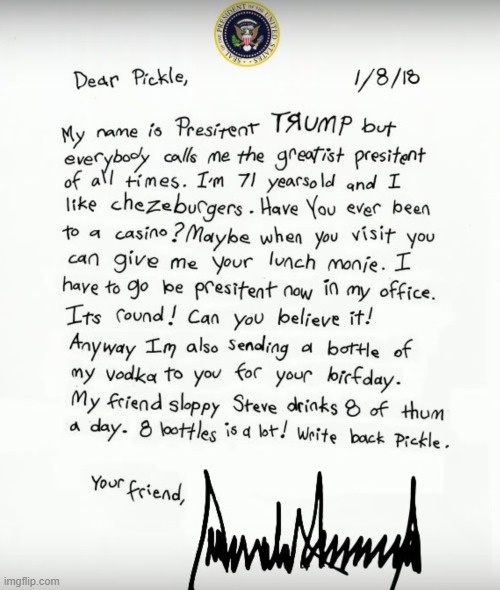 SEAL OF THE PRESIDENT OF THE UNITED STATES
Dear Pickle, 1/8/18
My name is Presitent TЯUMP but
everybody calls me the greatist presitent
of all times. I'm 71 yearsold and I
like chezeburgers. Have You ever been
to a casino? Maybe when you visit you
can give me your lunch monie. I
have to go be presitent now in my office.
Its round! Can you believe it!
Anyway Im also sending a bottle of
my vodka to you for your birfday.
My friend sloppy Steve drinks 8 of thum
a day. 8 bottles is a lot! Write back Pickle.
Your friend,
Donald Trump
imgflip.com